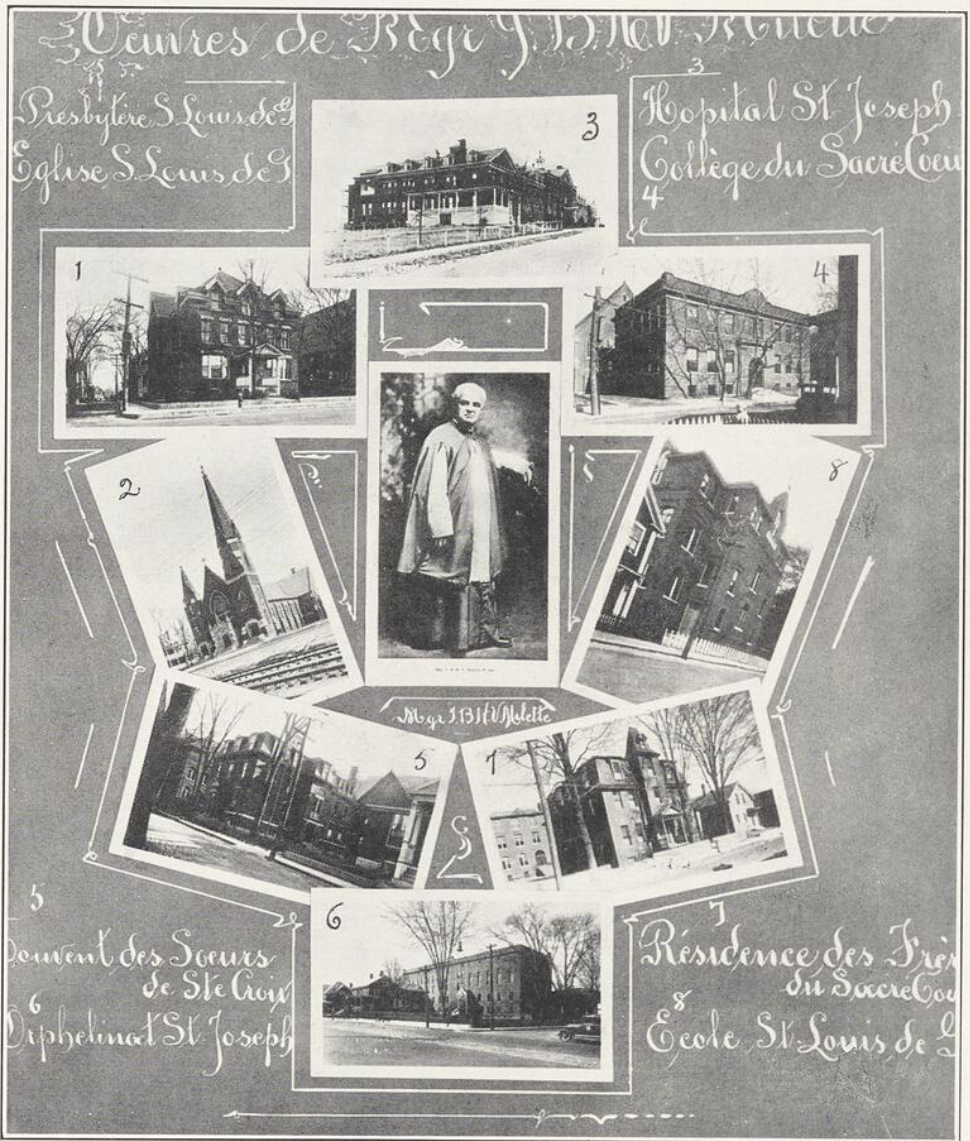 Oeuvres de Mgr J. B. H. V. Milette
Presbytère S. Louis de G
Eglise S. Louis de G
3
Hopital St Joseph
Collège du Sacre Coeu
4
3
1
4
2
8
Mgr J B H V Milette
5
7
6
5
Couvent des Soeurs
de Ste Croix
6
Orphelinat St Joseph
7
Résidence des Frèr
du Sacre Coe
8
Ecole St Louis de G